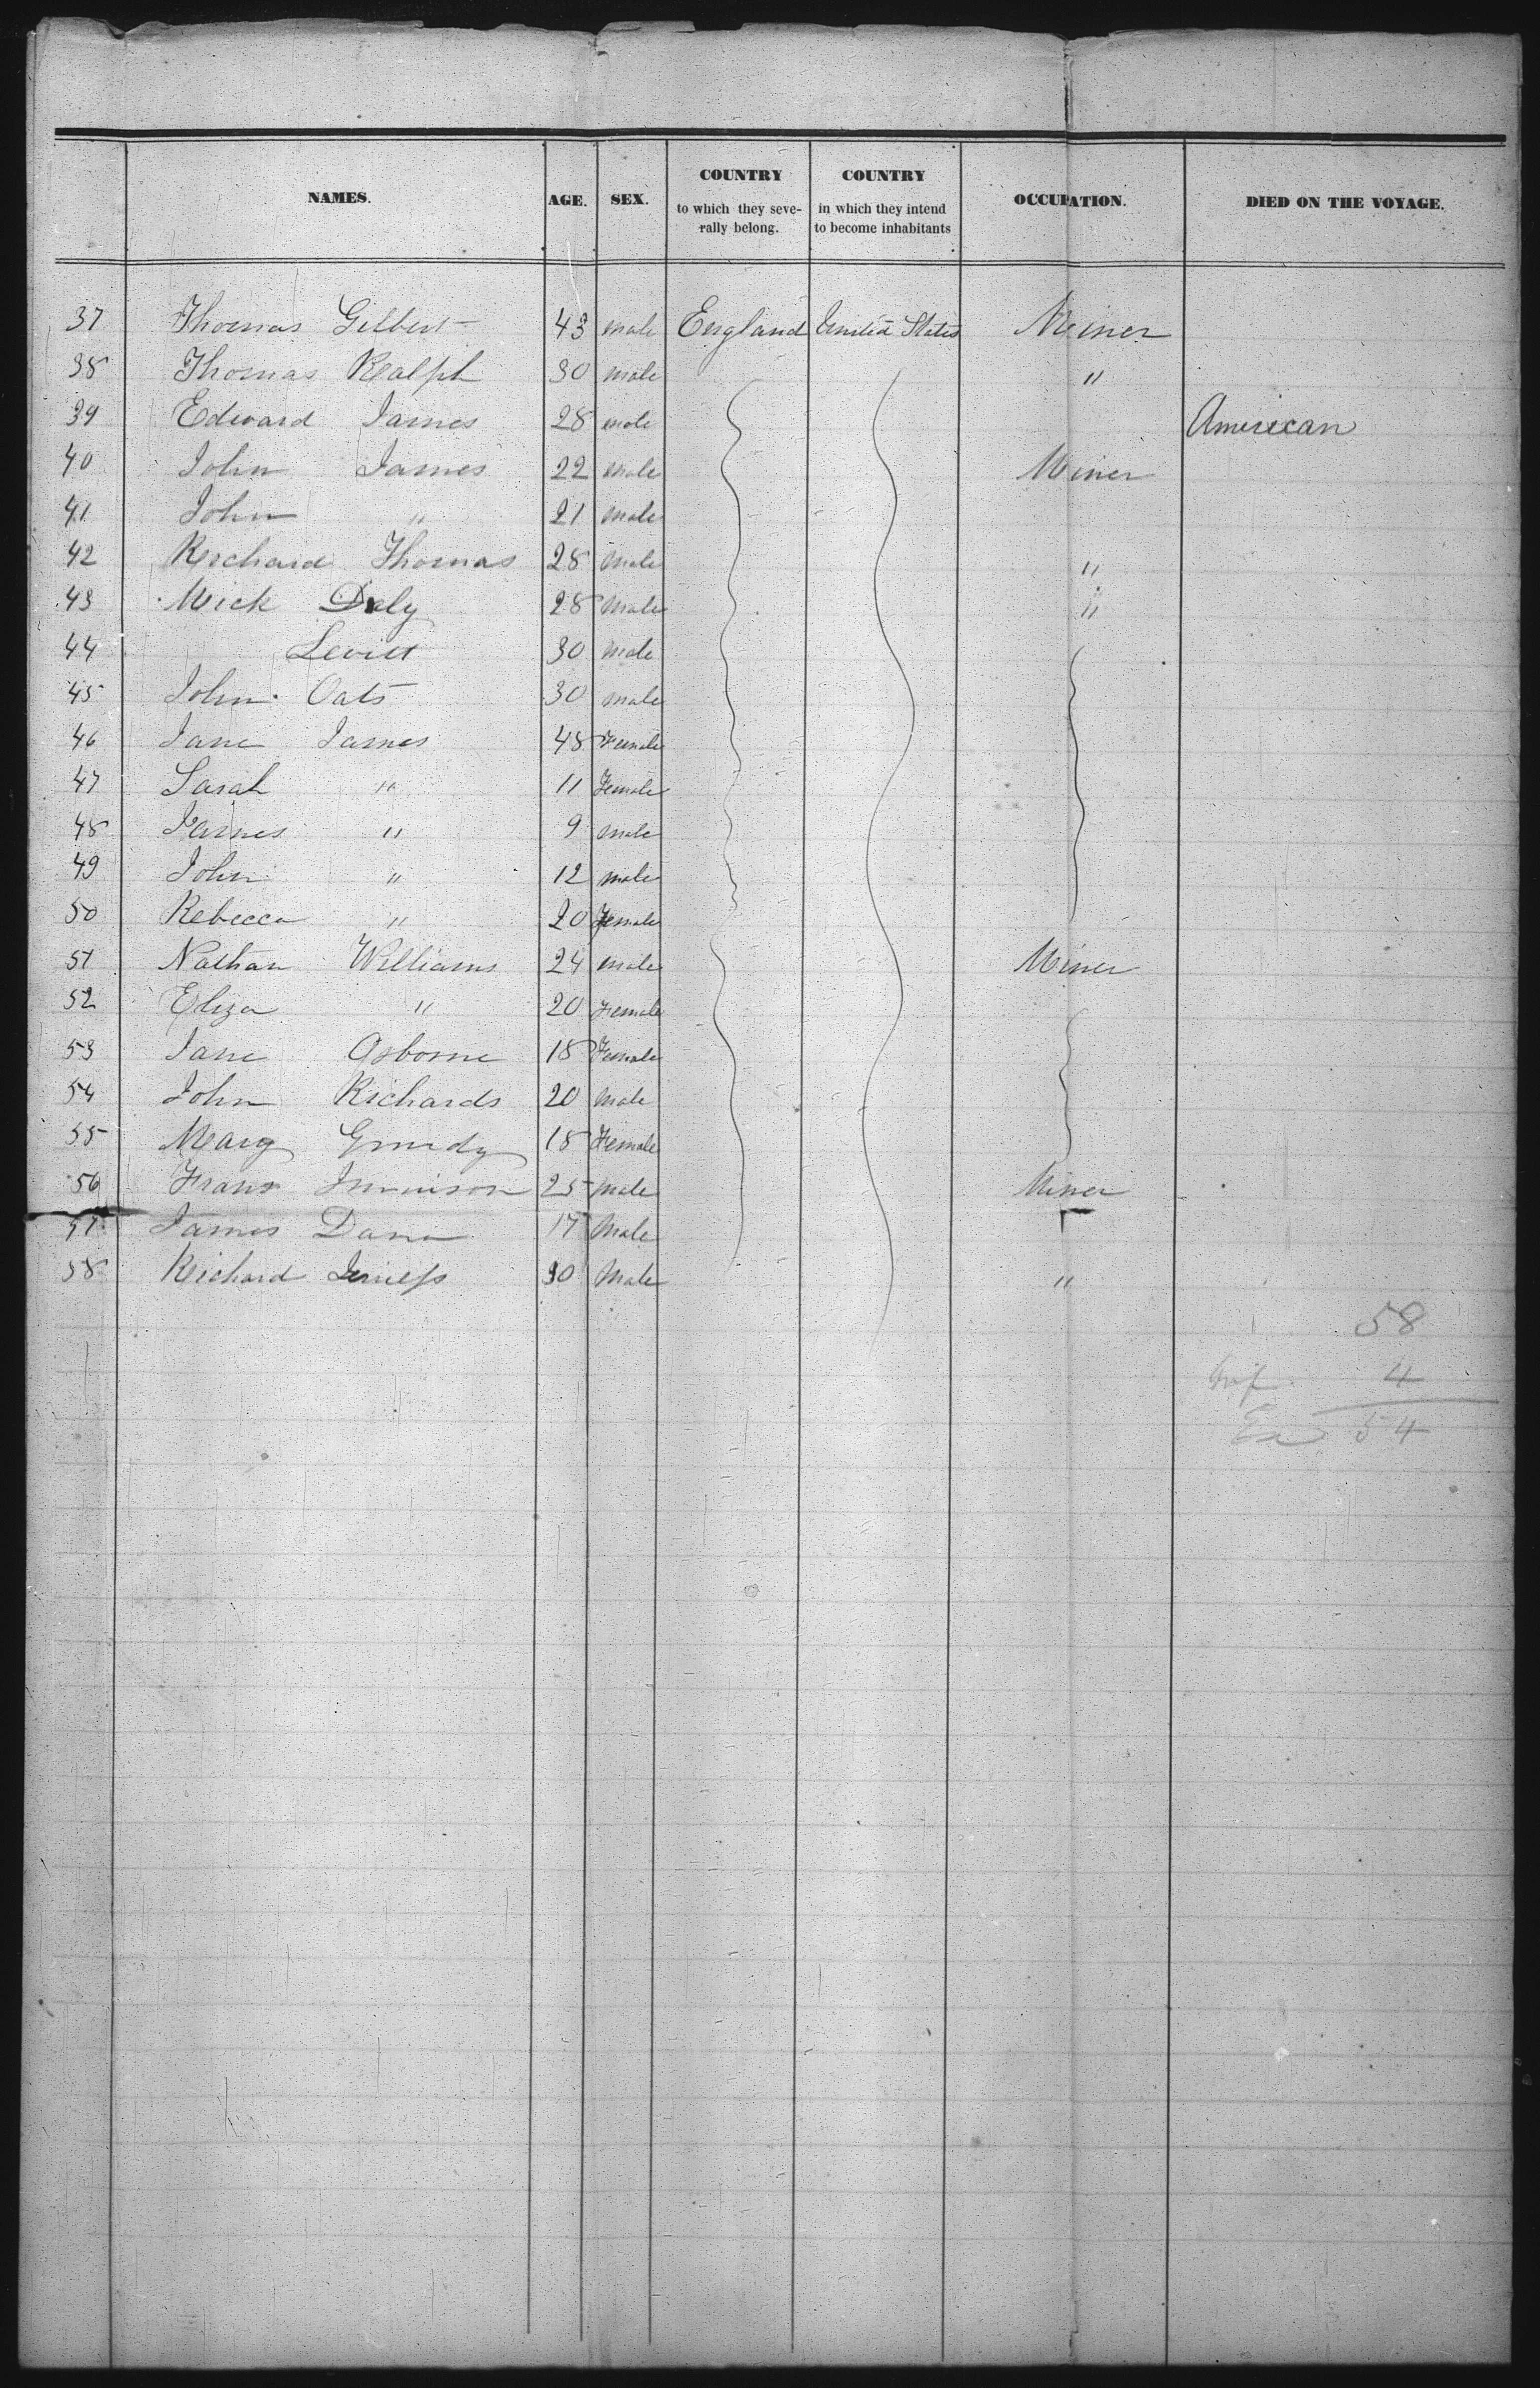 NAMES. AGE. SEX. COUNTRY to which they seve- rally belong. COUNTRY in which they intend to become inhabitants OCCUPATION. DIED ON THE VOYAGE.
37 Thomas Gilbert 43 male England United States Miner
38 Thomas Ralph 30 male "
39 Edward James 28 male American
40 John James 22 male Miner
41 John " 21 male
42 Richard Thomas 28 male "
43 Mick Daly 28 male "
44 Levitt 30 male
45 John Oats 30 male
46 Jane James 48 Female
47 Sarah " 11 Female
48 James " 9 male
49 John " 12 male
50 Rebecca " 20 Female
51 Nathan Williams 24 male Miner
52 Eliza " 20 Female
53 Jane Osborne 18 Female
54 John Richards 20 male
55 Mary Grundy 18 Female
56 25 male Miner
57 James 17 Male
58 Richard 30 Male "
58
4
54